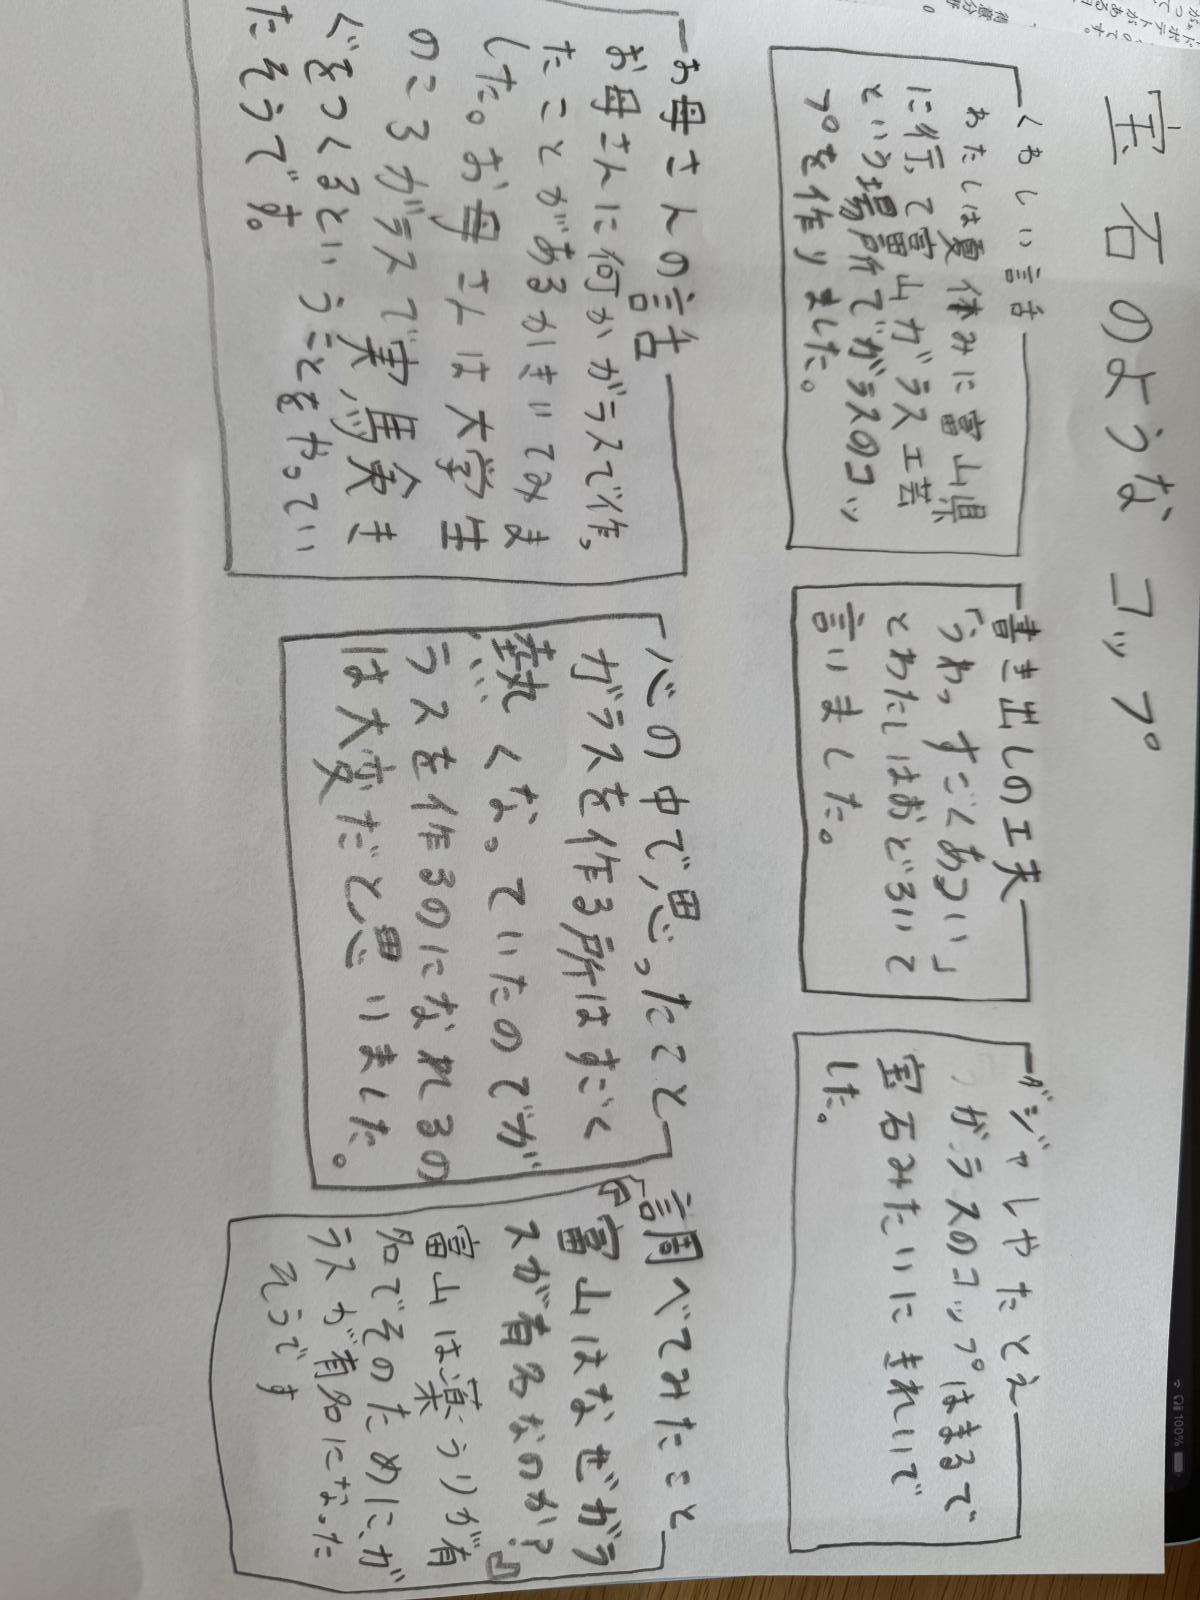 宝石のようなコップ
くわしい話
わたしは夏休みに富山県
に行って富山ガラス工芸
という場所でガラスのコッ
プを作りました。
書き出しの工夫
「うわっすごくあつい」
とわたしはおどろいて
言いました。
ガジャしやたとえ
ガラスのコップはまるで
宝石みたいにきれいで
した。
お母さんの話
お母さんに何かガラスで作っ
たことがあるかきいてみま
した。お母さんは大学生
のころガラスで実験き
ぐをつくるということをやってい
たそうです。
心の中で思ったこと
ガラスを作る所はすごく
熱くなっていたのでガ
ラスを作るのになれるの
は大変だと思いました。
調べてみたこと
『富山はなぜガラ
スが有名なのか?』
富山は薬うりが有
名でそのためにガ
ラスが有名になった
そうです
100%